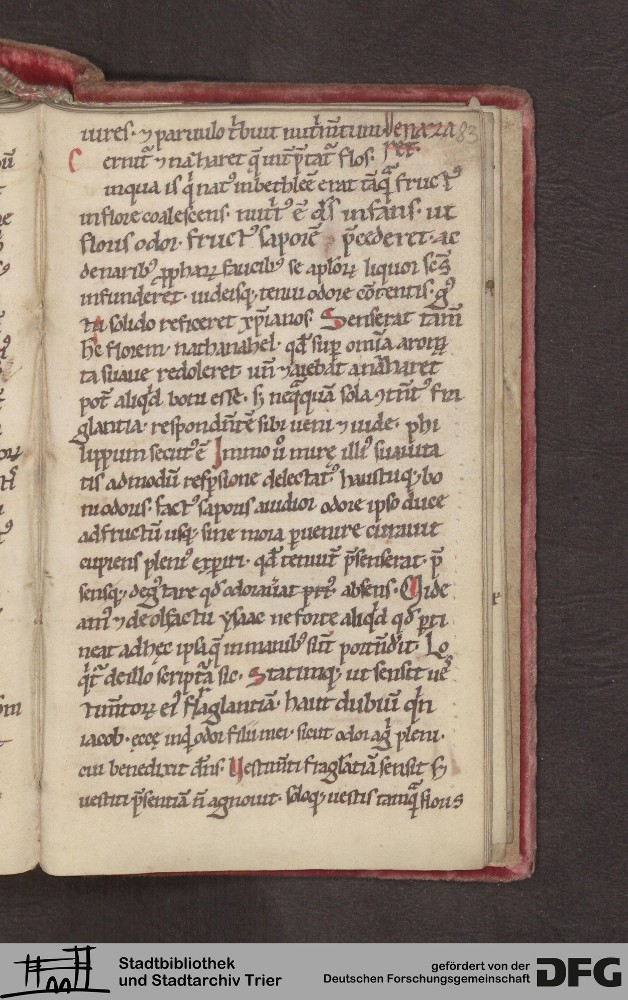 uires · ⁊ paruulo t̄buit nut̄m̄tum Denaza 83
Cernit᷑ ⁊ nazaret q̄ int̄p̄tat᷑ flos · ret·
in qua is q̄ nat᷒ in bethleē erat tāq̄ fruct᷒
in flore coalescens · nut̄t᷒ ē d̄s infans · ut
floris odor · fruct᷒ saporē p̄cederet · ac
denarib᷒ ꝓphaꝝ faucib᷒ se aplōꝝ liquor sc̄s
infunderet · uideisq; tenui odore cōtentis · g᷒
ta solido reficeret xp̄ianos · Senserat tam̄
hc̄ florem · nathanahel · qd̄ sup̄ om̄ia aromꝝ
ta suaue redoleret un̄ ⁊ aiebat a nazaret
pot̄ aliq̇d boni esse · s; neq̄quā sola ꝯtent᷒ fra
glantia · respondentē sibi ueni ⁊ uide · phi
lippum secut᷒ ē Immo u̇ miręe illi᷒ suauita
tis ad modū respsione delectat᷒ · haustuq; bo
ni odoris · fact᷒ saporis auidior odore ipso duce
ad fructū usq; sine mora puenire curauit
cupiens pleni᷒ expiri · qd̄ tenuit̄ p̄senserat · p̄
sensq; degustare qd̄ odorauerat pri᷒ absens · Vide
am᷒ ⁊ de olfactu ysaac ne forte aliq̇d qd̄ pti
neat ad hęc ipsa q̄ in manib᷒ sūt portend̄it · Lo
q̇t᷑ de illo scriptā sic · Statimq; ut sensit ue
stimentoꝝ ei᷒ flaglantiā · haut dubiū q̇n
iacob · ęcce inq̇d odor filii mei · sicut odor agi pleni ·
cui benedixit dn̄s · Vestimenti fraglātiā sensit s;
uestiti p̄sentiā n̄ agnouit · soloq; uestis tamq̄ floris
Stadtbibliothek
und Stadtarchiv Trier
gefördert von der
Deutschen Forschungsgemeinschaft
DFG